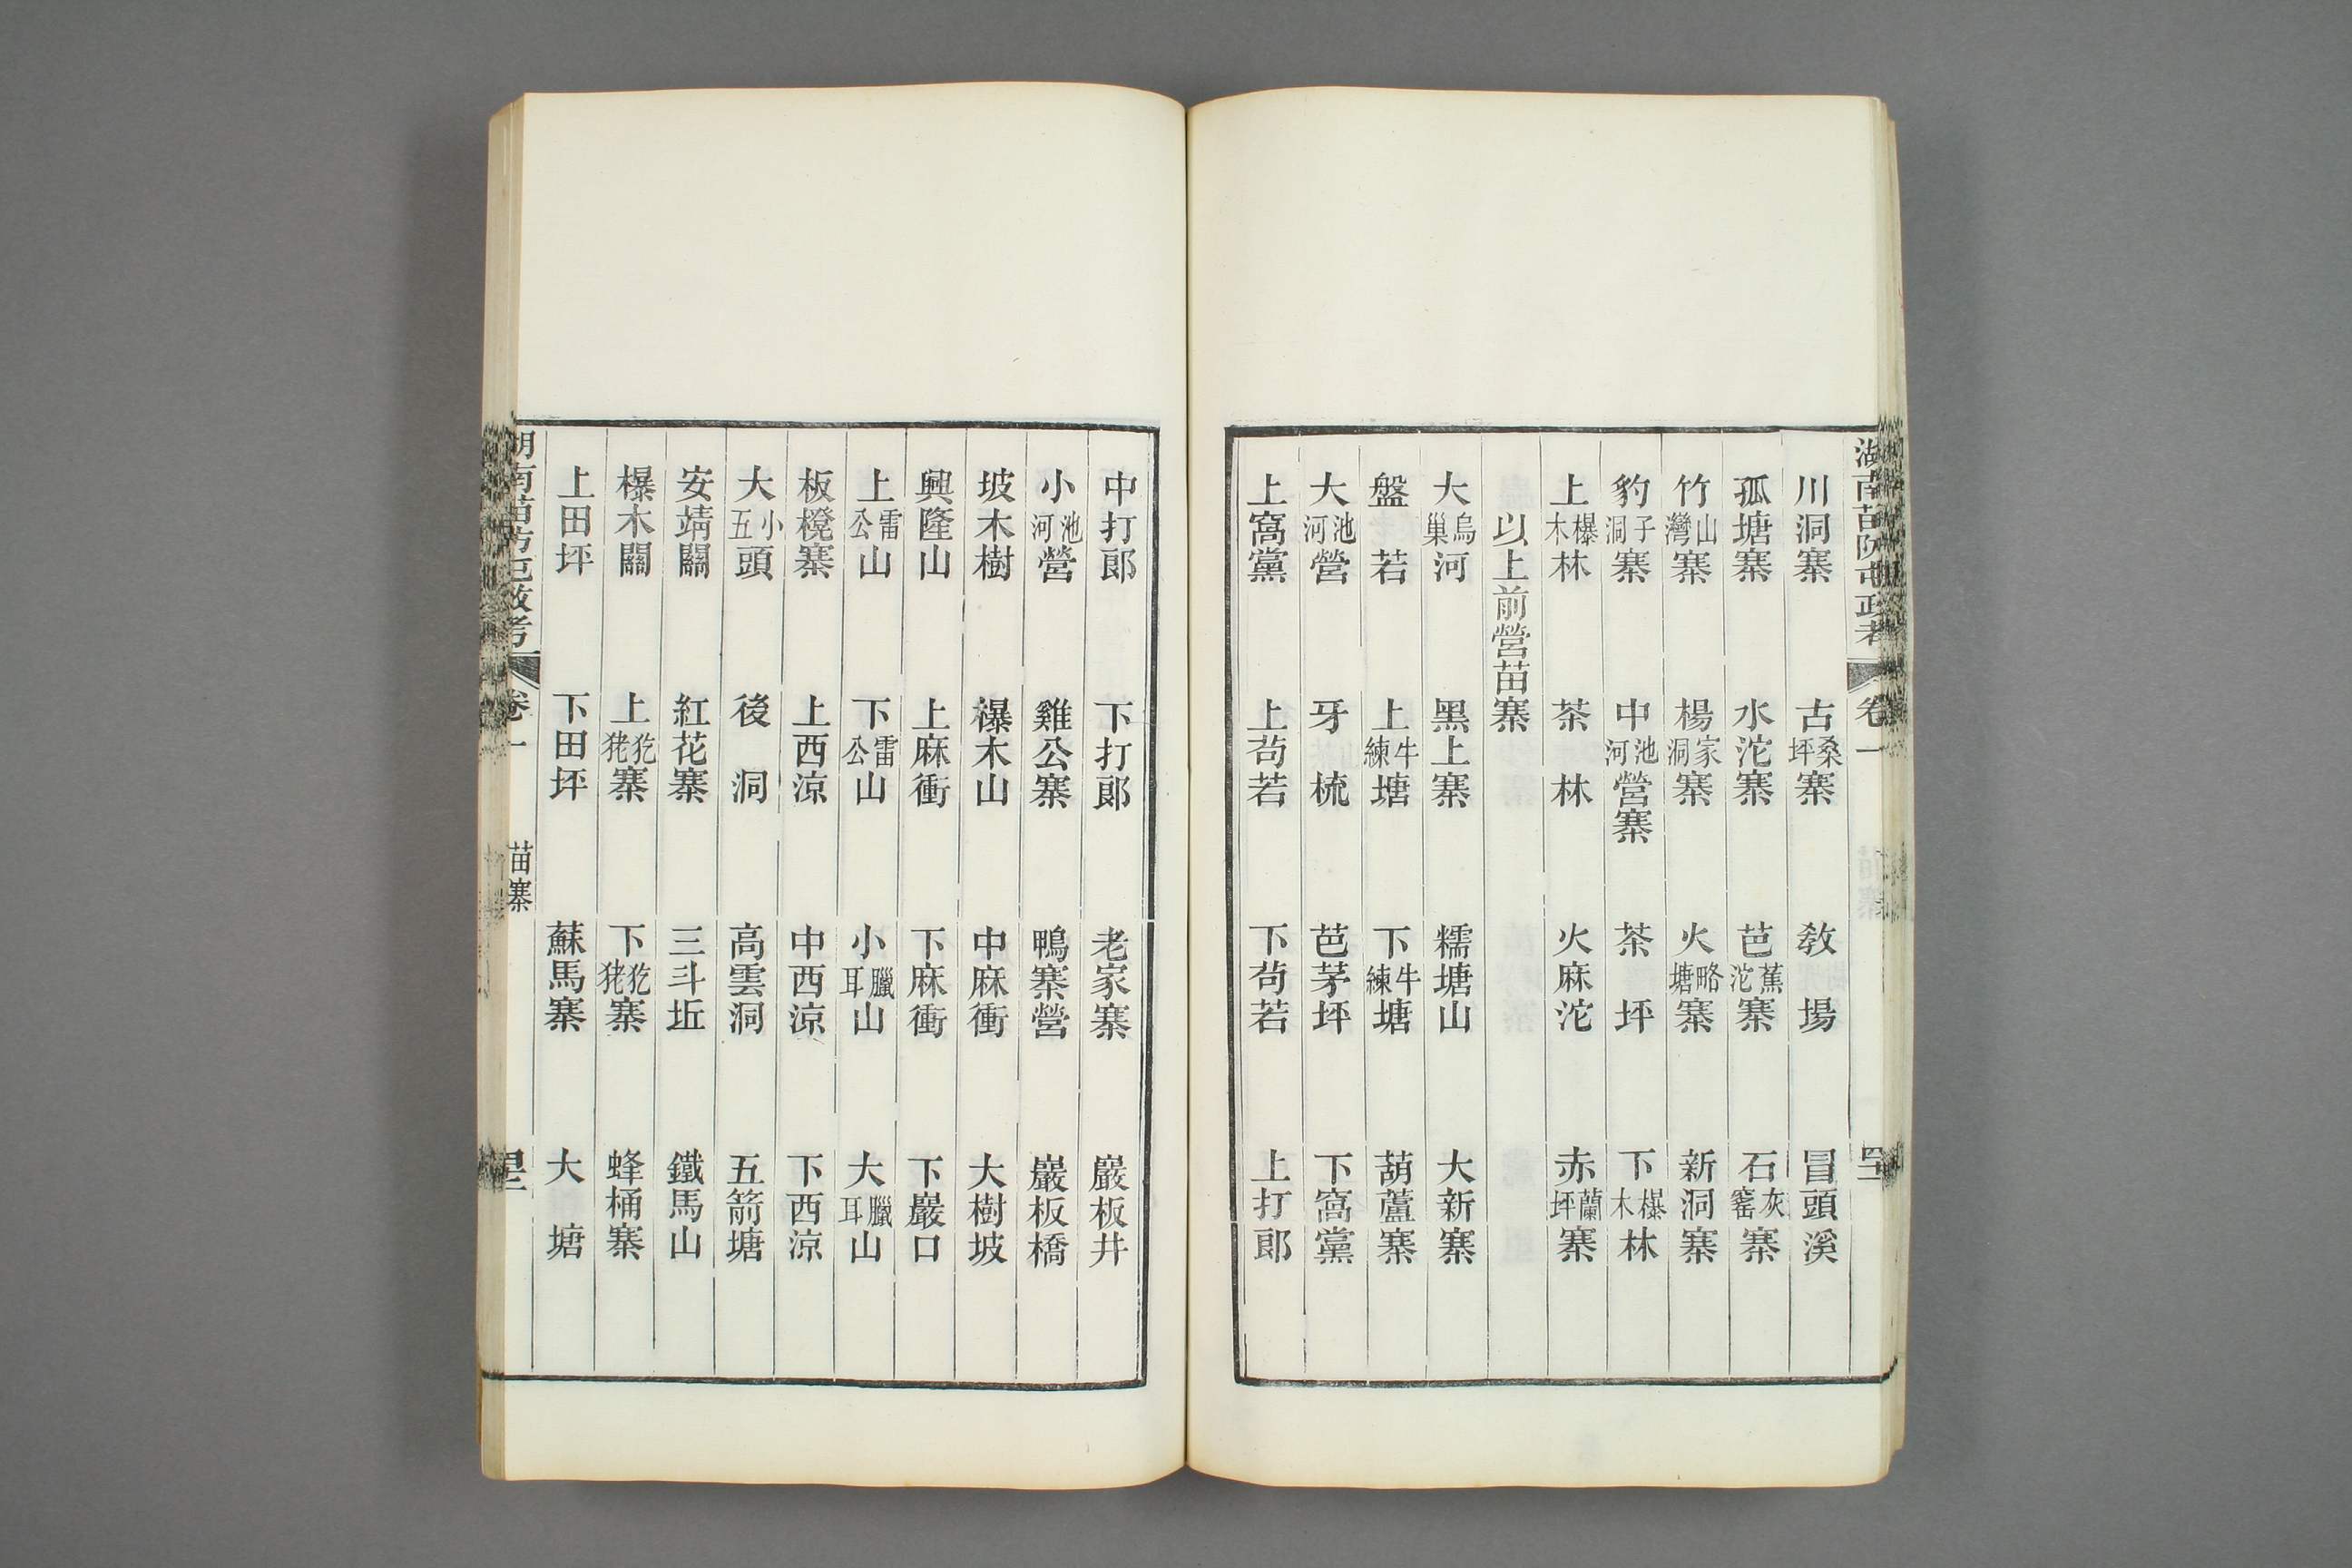 湖南苗防屯政考 卷一
川洞寨 古桑坪寨 敎場 冒頭溪
孤塘寨 水沱寨 芭蕉沱寨 石灰窰寨
竹山灣寨 楊家洞寨 火略塘寨 新洞寨
豹子洞寨 中池河營寨 茶坪 下欙木林
上欙木林 茶林 火麻沱 赤蘭坪寨
以上前營苗寨
大烏巢河 黑上寨 糯塘山 大新寨
盤若 上牛練塘 下牛練塘 葫蘆寨
大池河營 牙梳 芭茅坪 下窩黨
上窩黨 上茍若 下茍若 上打郎
中打郎 下打郎 老家寨 巖板井
小池河營 雞公寨 鴨寨營 巖板橋
坡木樹 木山 中麻衝 大樹坡
興隆山 上麻衝 下麻衝 下巖口
上雷公山 下雷公山 小臘耳山 大臘耳山
板櫈寨 上西涼 中西涼 下西涼
大小五頭 後洞 高雲洞 五箭塘
安靖關 紅花寨 三斗坵 鐵馬山
木關 上犵狫寨 下犵狫寨 蜂桶寨
上田坪 下田坪 蘇馬寨 大塘
湖南苗防屯政考 卷一 苗寨